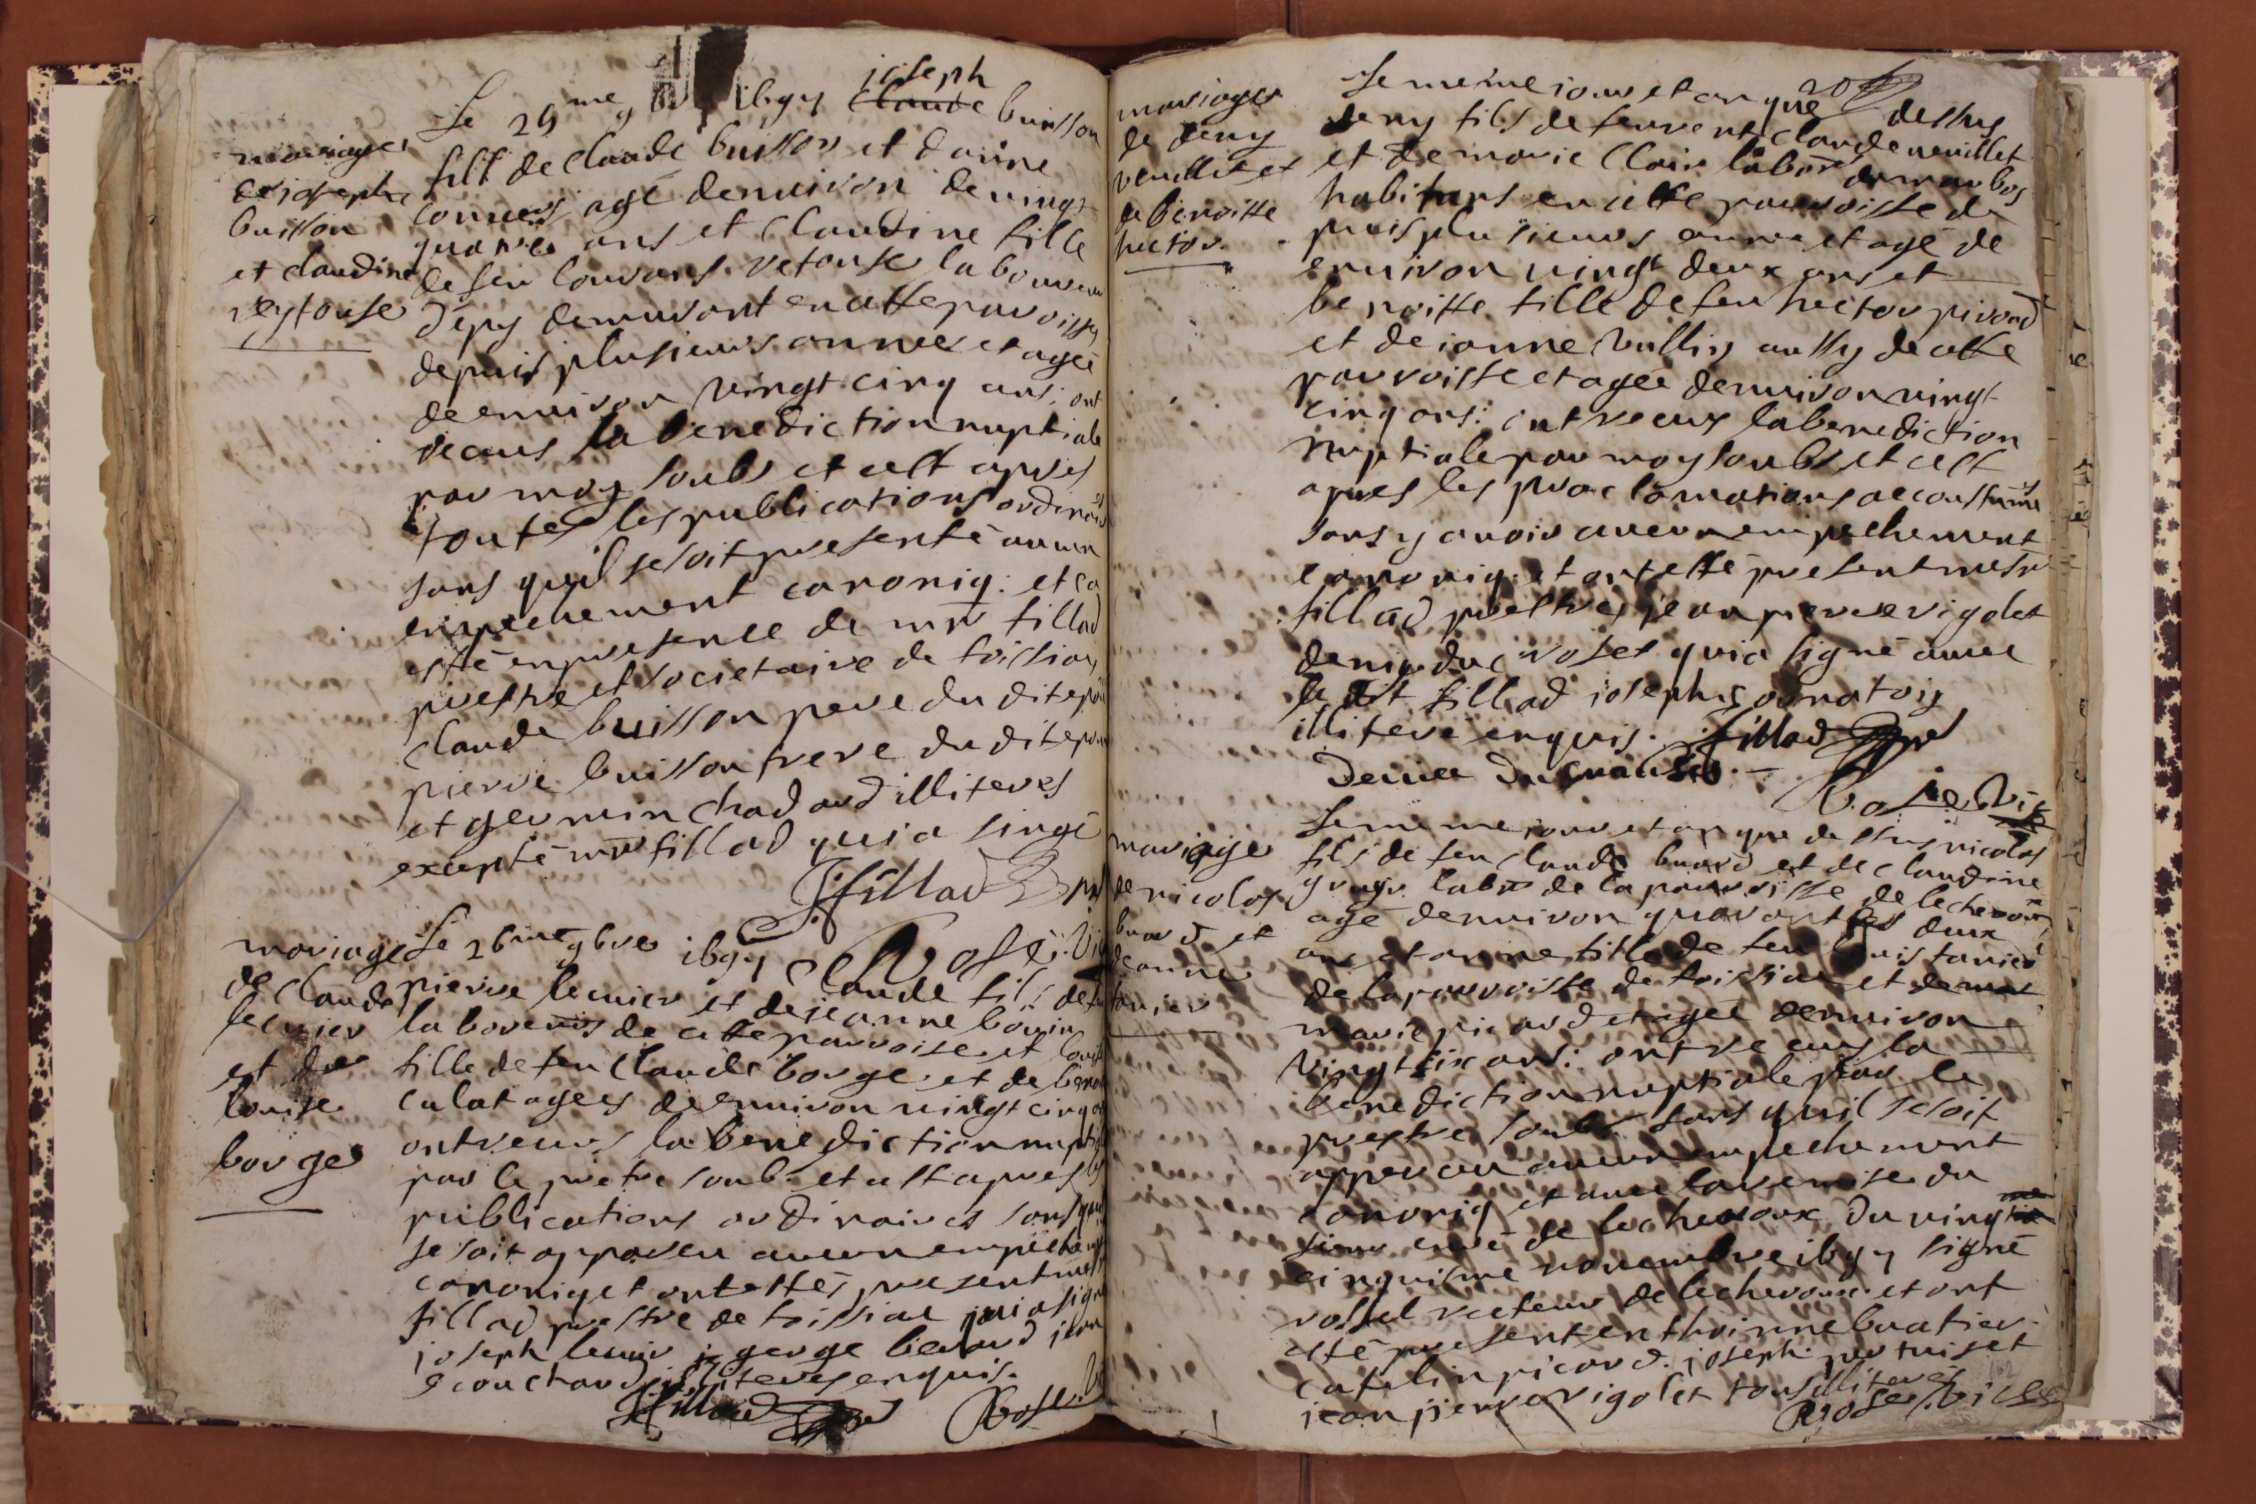 mariage
de joseph
buisson
et claudine
veytouse
joseph
Le 29me 9 ibgy Claude buisson
fils de Claude buisson et danne
agé denuiron de uingt
quatre ans et Claudine fille
de feu vetouse laboureur
d'épy demurant en cette parroisse
depuis plusieurs annees et agée
de enuiron vingt cinq ans; ont
receus la benediction nuptiale
par moy soubs et cest apres
toutes les publications ordinai
sans quil se soit presenté aucun
empechement canoniq: et ca
esté en presence de mre fillad
prestre et societaire de toissiay
Claude buisson pere du dit epou
pierre buisson frere du dit epou
et germin chadard illiteres
excepté mre fillad qui a singé
fillad
mariage
de claude
lecuier
et de
louise
borges
Le 26me 9bre ibgy Claude fils de
pierre lecuier et de jeanne borin
laboreurs de cette parroise et louise
fille de feu Claude borge et de
culat agees de enuiron uingt cinq
ont receus la benediction nupti
par le pretre soub. et cest apres
publications ordinaires sans quil
se soit apparu aucun empeche
canoniq et ont estés present
fillad prestre de toissiat qui a signé
joseph lecuier george berard jean
econchard illiteres enquis.
fillad
mariage
de deny
veuillet et
de benoitte
hector
20
Le meme jour et an que dessus
deny fils de feu Claude veuillet
et de marie Clair labor de marbos
habitans en cette parroisse de
puis plusieurs année et agé de
enuiron uingt deux ans et
benoitte fille de feu hector pivard
et de janne vullin aussy de cette
parroisse et agée denuiron uingt
cinq ans: ont receus la benediction
nuptiale par moy soubs et cest
apres les proclamations accoustumé
sans y auoir aucun empechement
canoniq: et ont esté present mesr
fillad prestre, jean pierre rigolet
du roset qui a signé auec
le dit fillad joseph
illiteré enquis. fillad
mariage
de nicolas
buard et
deanne
tanier
Le meme jour et an que dessus nicolas
fils de feu claude buard et de claudine
labr de la parroisse de lecheroux
agé denuiron quarante deux
ans et anne fille de feu louis tanier
de la parroisse de toissiat et de mar
marie picard et agée denuiron
vingt six ans: ont receus la
benediction nuptiale par le
prestre soub. sans quil se soit
apparu aucun empechement
canoniq et auec la remise du
sieur curé de lecheroux du vingt
cinquiéme nouembre ibgy signé
rossel recteur de lecheroux et ont
esté present enthoinne buatier
catelin picard. joseph pertuiset
jean pierre rigolet tous illiterés